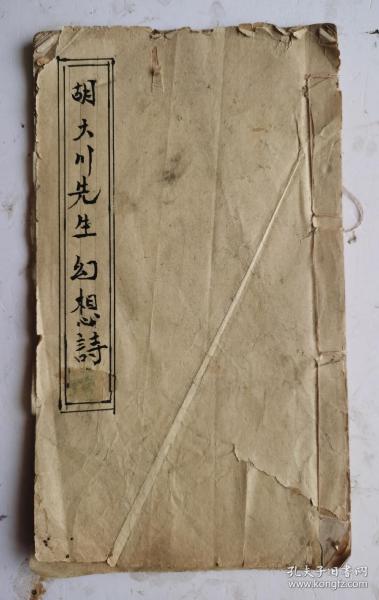 胡大川先生幻想詩
孔夫子旧书网
www.kongfz.com